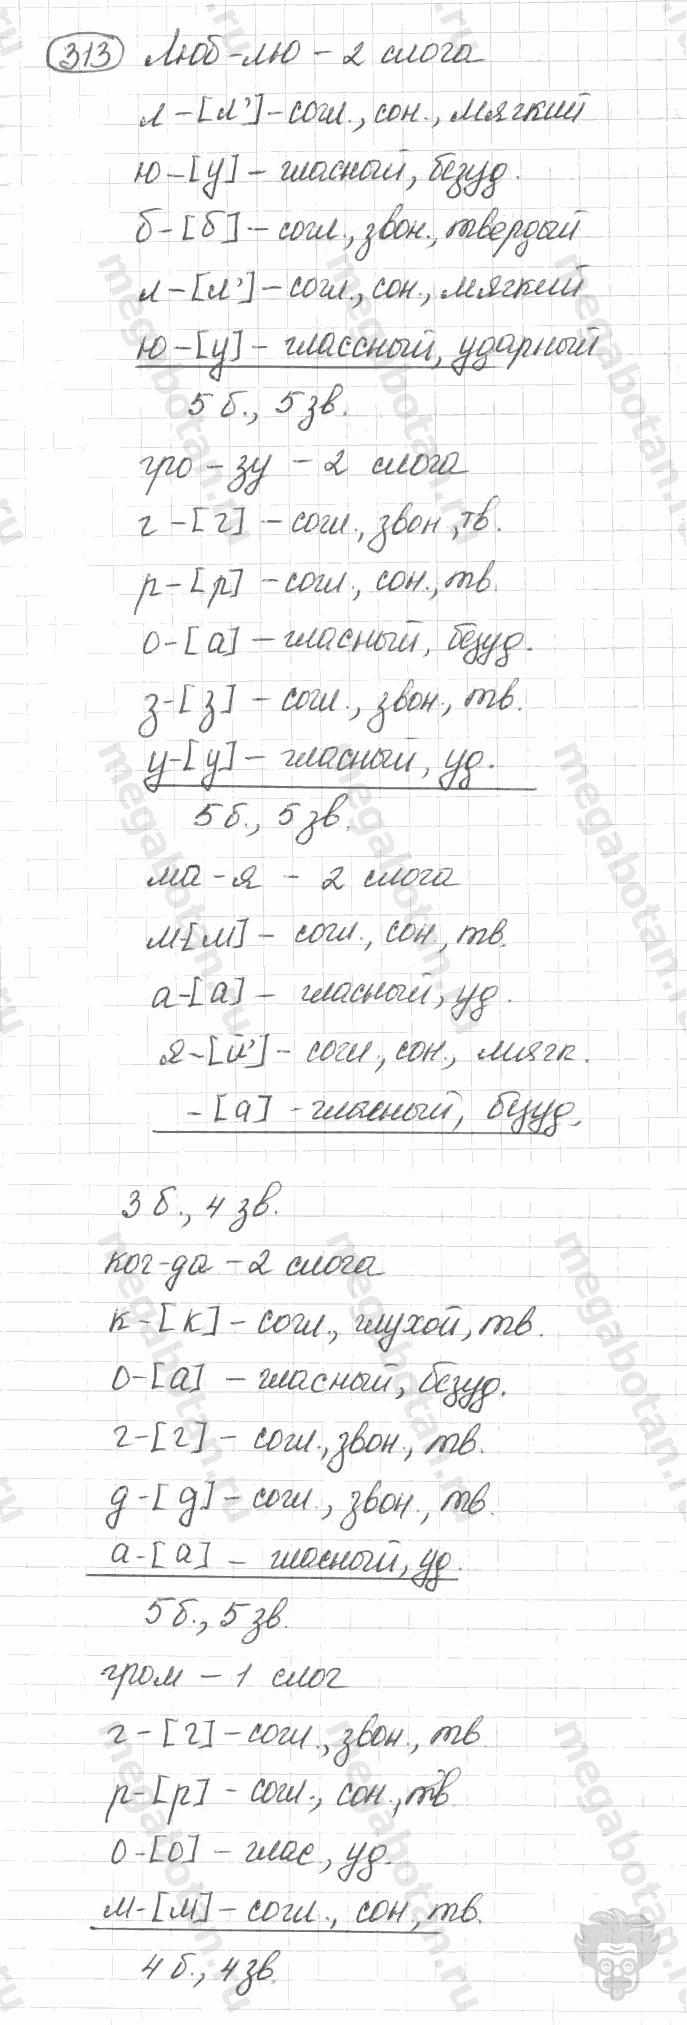 313 Люб-лю - 2 слога
л - [л'] - согл., сон., мягкий
ю - [у] - гласный, безуд.
б - [б] - согл., звон., твердый
л - [л'] - согл., сон., мягкий
ю - [у] - глассный, ударный
5 б., 5 зв.
гро - зу - 2 слога
г - [г] - согл., звон, тв.
р - [р] - согл., сон., тв.
о - [а] - гласный, безуд.
з - [з] - согл., звон., тв.
у - [у] - гласный, уд.
5 б., 5 зв.
ма - я - 2 слога
м - [м] - согл., сон., тв.
а - [а] - гласный, уд.
я - [й'] - согл., сон., мягк.
- [а] - гласный, безуд.
3 б., 4 зв.
ког-да - 2 слога
к - [к] - согл., глухой, тв.
о - [а] - гласный, безуд.
г - [г] - согл., звон., тв.
д - [д] - согл., звон., тв.
а - [а] - гласный, уд.
5 б., 5 зв.
гром - 1 слог
г - [г] - согл., звон., тв.
р - [р] - согл., сон., тв.
о - [о] - глас, уд.
м - [м] - согл., сон, тв.
4 б., 4 зв.
megabotan.ru